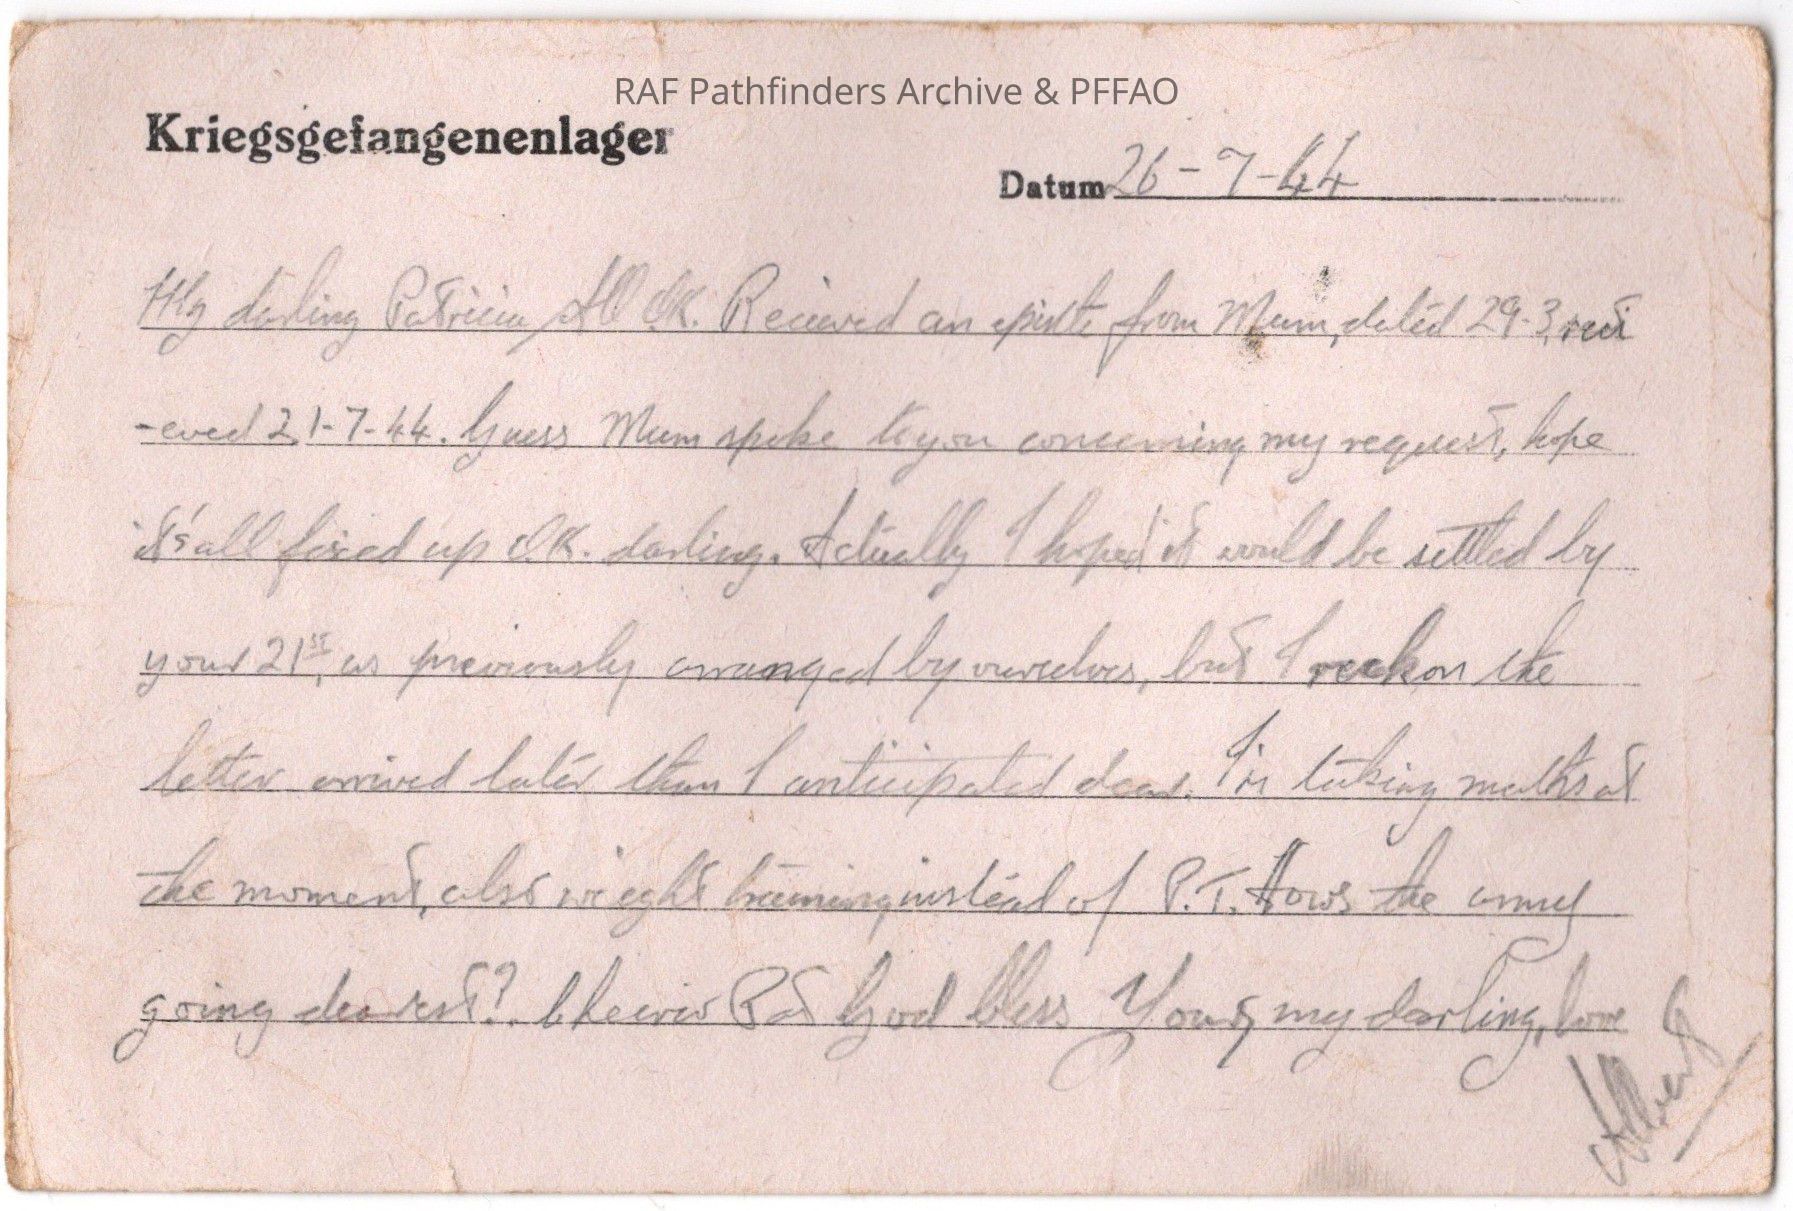 RAF Pathfinders Archive & PFFAO
Kriegsgefangenenlager
Datum 26-7-44
My darling Patricia, All OK. Recieved an epistle from Mum, dated 29-3, reci
-eved 21-7-44. Guess Mum spoke to you concerning my request, hope
it's all fixed up OK. darling. Actually I hoped it would be settled by
your 21st, as previously arranged by ourselves, but I reckon the
letter arrived later than I anticipated dear. I'm taking maths at
the moment, also wieght training instead of P.T. Hows the army
going dearest? Cheerio Pat God bless Yours, my darling, love
Albert